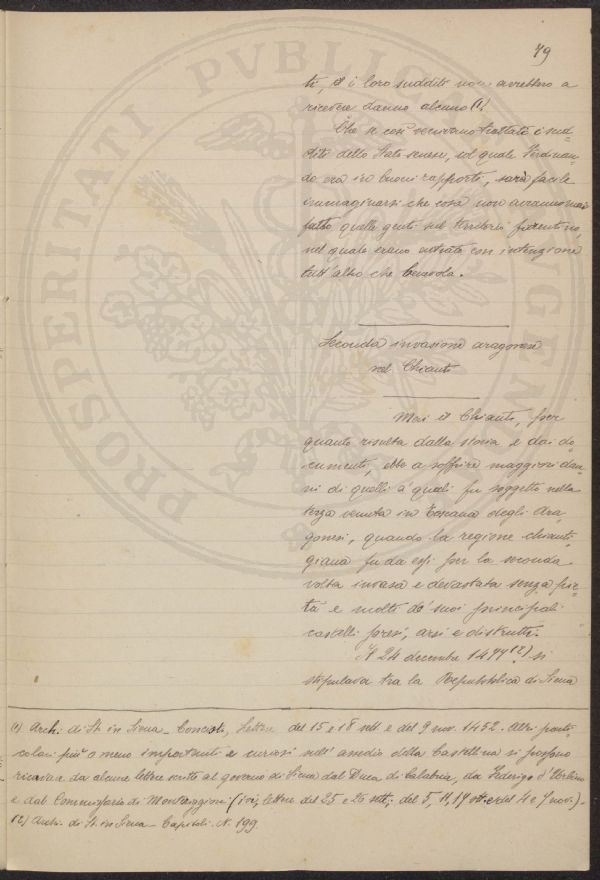 79
ti, e i loro sudditi non avrebbero a
ricevere danno alcuno (1).
Che se così venivano trattati i sud-
diti dello Stato senese, col quale Ferdinan-
do era in buoni rapporti, sarà facile
immaginarsi che cosa non avranno mai
fatto quelle genti sul territorio fiorentino,
nel quale erano entrate con intenzione
tutt'altro che benevola.
Seconda invasione aragonese
nel Chianti
Mai il Chianti, per
quanto risulta dalla storia e dai do-
cumenti, ebbe a soffrire maggiori dan-
ni di quelli a' quali fu soggetto nella
terza venuta in Toscana degli Ara-
gonesi, quando la regione chianti-
giana fu da essi per la seconda
volta invasa e devastata senza pie-
tà e molti de' suoi principali
castelli presi, arsi e distrutti.
Il 24 decembre 1477 (2) si
stipulava tra la Repubblica di Siena
(1) Arch. di St. in Siena - Concist., Lettere del 15 e 18 sett. e del 9 nov. 1452. Altri parti-
colari più o meno importanti e curiosi sull'assedio della Castellina si possono
ricavare da alcune lettere scritte al governo di Siena dal Duca di Calabria, da Federigo d'Urbino
e dal Commissario di Monteriggioni (ivi, lettere del 25 e 26 sett., del 5, 11, 17 ott. e del 4 e 7 nov.).-
(2) Arch. di St. in Siena - Capitoli. N. 199.
PROSPERITATI PVBLICAE